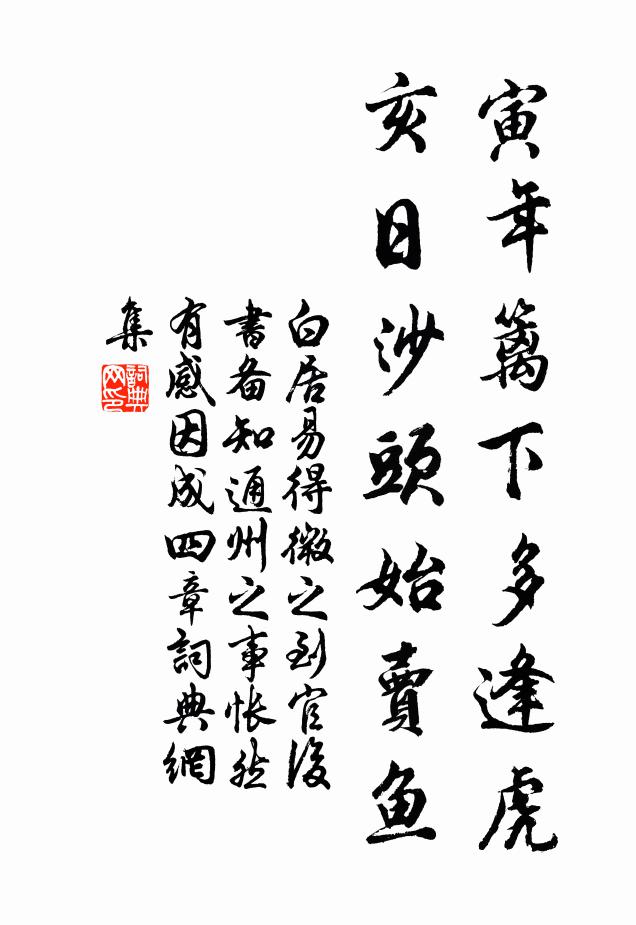 寅年篱下多逢虎
亥日沙頭始賣鱼
白居易得微之到官後
書备知通州之事怅然
有感因成四章詞典網
集
詞典
网印